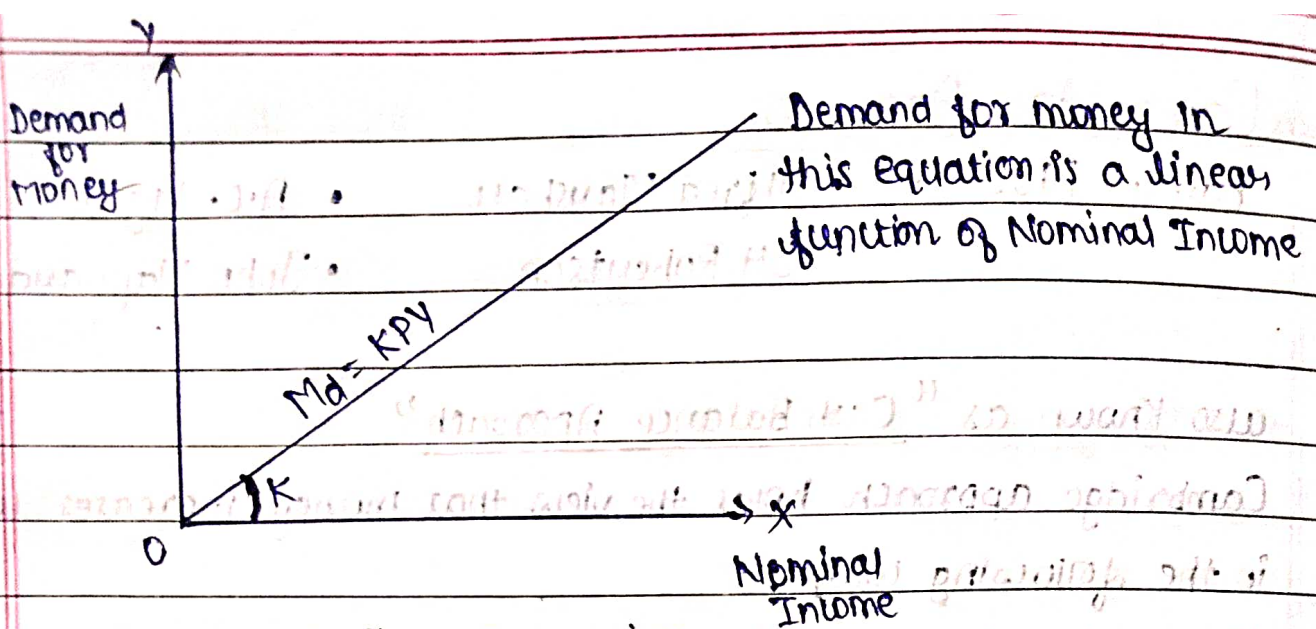 Y
Demand
for
Money
Demand for money in
this equation is a linear
function of Nominal Income
Md = KPY
K
O
X
Nominal
Income